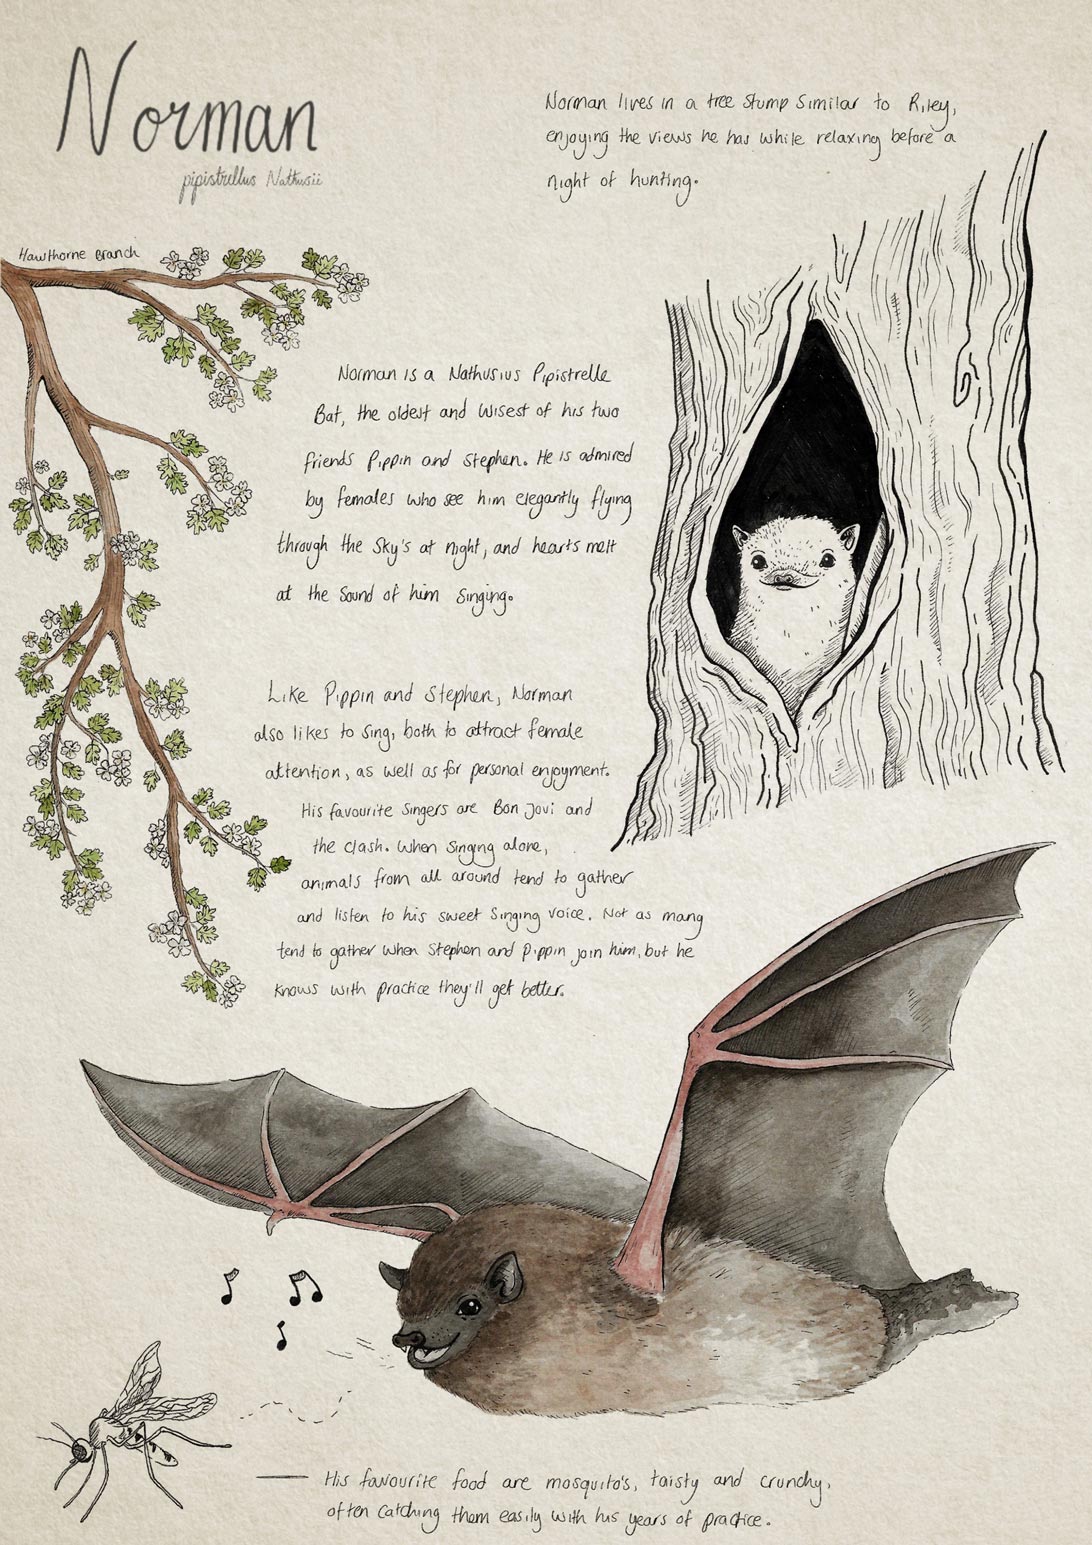 Norman
pipistrellus Nathusii
Norman lives in a tree stump similar to Riley,
enjoying the views he has while relaxing before a
night of hunting.
Hawthorne Branch
Norman is a Nathusius Pipistrelle
Bat, the oldest and wisest of his two
friends Pippin and Stephen. He is admired
by females who see him elegantly flying
through the sky's at night, and hearts melt
at the sound of him singing.
Like Pippin and Stephen, Norman
also likes to sing, both to attract female
attention, as well as for personal enjoyment.
His favourite singers are Bon Jovi and
the Clash. When singing alone,
animals from all around tend to gather
and listen to his sweet singing voice. Not as many
tend to gather when Stephen and Pippin join him, but he
knows with practice they'll get better.
His favourite food are mosquito's, taisty and crunchy,
often catching them easily with his years of practice.